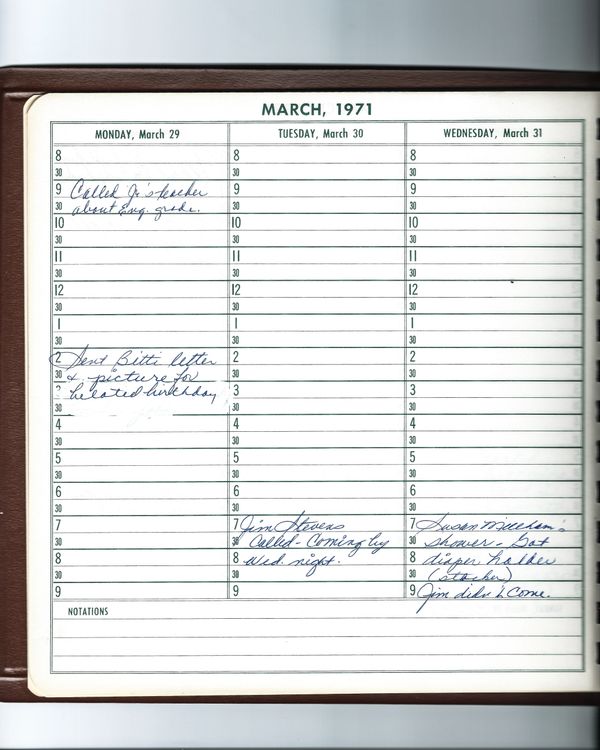 MARCH, 1971
MONDAY, March 29
8
30
9 Called Jr's teacher
30 about Eng. grade.
10
30
11
30
12
30
1
30
2 Sent Bitti letter
30 & picture for
3 belated birthday
30
4
30
5
30
6
30
7
30
8
30
9
TUESDAY, March 30
8
30
9
30
10
30
11
30
12
30
1
30
2
30
3
30
4
30
5
30
6
30
7 Jim Stevens
30 Called - Coming by
8 Wed. night.
30
9
WEDNESDAY, March 31
8
30
9
30
10
30
11
30
12
30
1
30
2
30
3
30
4
30
5
30
6
30
7 Susan
30 shower - Got
8 diaper holder
30 (stacker)
9 Jim didn't Come.
NOTATIONS